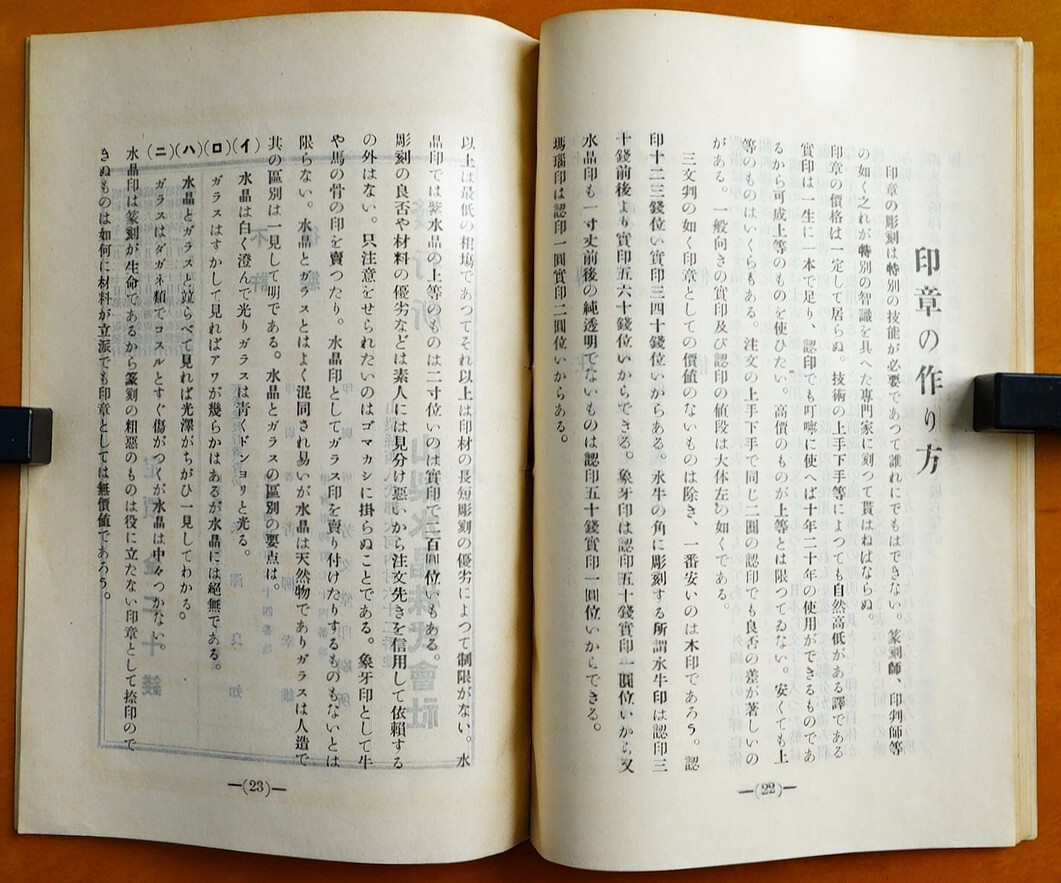 印章の作り方
印章の彫刻は特別の技能が必要であつて誰れにでもはできない。篆刻師、印判師等
の如く之れが特別の智識を具へた専門家に刻つて貰はねばならぬ。
印章の價格は一定して居らぬ。技術の上手下手等によつても自然高低がある譯である
實印は一生に一本で足り、認印でも叮嚀に使へば十年二十年の使用ができるものであ
るから可成上等のものを使ひたい。高價のものが上等とは限つてゐない。安くても上
等のものはいくらもある。注文の上手下手で同じ二圓の認印でも良否の差が著しいの
がある。一般向きの實印及び認印の値段は大体左の如くである。
三文判の如く印章としての價値のないものは除き、一番安いのは木印であろう。認
印十二三錢位い實印三四十錢位いからある。水牛の角に彫刻する所謂水牛印は認印三
十錢前後より實印五六十錢位いからできる。象牙印は認印五十錢實印一圓位いから又
水晶印も一寸丈前後の純透明でないものは認印五十錢實印一圓位いからできる。
瑪瑙印は認印一圓實印二圓位いからある。
—(22)—
以上は最低の相塲であつてそれ以上は印材の長短彫刻の優劣によつて制限がない。水
晶印では紫水晶の上等のものは二寸位いのは實印で二百圓位いもある。
彫刻の良否や材料の優劣などは素人には見分け惡いから注文先きを信用して依賴する
の外はない。只注意をせられたいのはゴマカシに掛らぬことである。象牙印として牛
や馬の骨の印を賣つたり。水晶印としてガラス印を賣り付けたりするものもないとは
限らない。水晶とガラスとはよく混同され易いが水晶は天然物でありガラスは人造で
其の區別は一見して明である。水晶とガラスの區別の要点は。
(イ) 水晶は白く澄んで光りガラスは靑くドンヨリと光る。
(ロ) ガラスはすかして見ればアワが幾らかはあるが水晶には絕無である。
(ハ) 水晶とガラスと竝らべて見れば光澤がちがひ一見してわかる。
(ニ) ガラスはダガネ類でコスルとすぐ傷がつくが水晶は中々つかない。
水晶印は篆刻が生命であるから篆刻の粗惡のものは役に立たない印章として捺印ので
きぬものは如何に材料が立派でも印章としては無價値であろう。
—(23)—